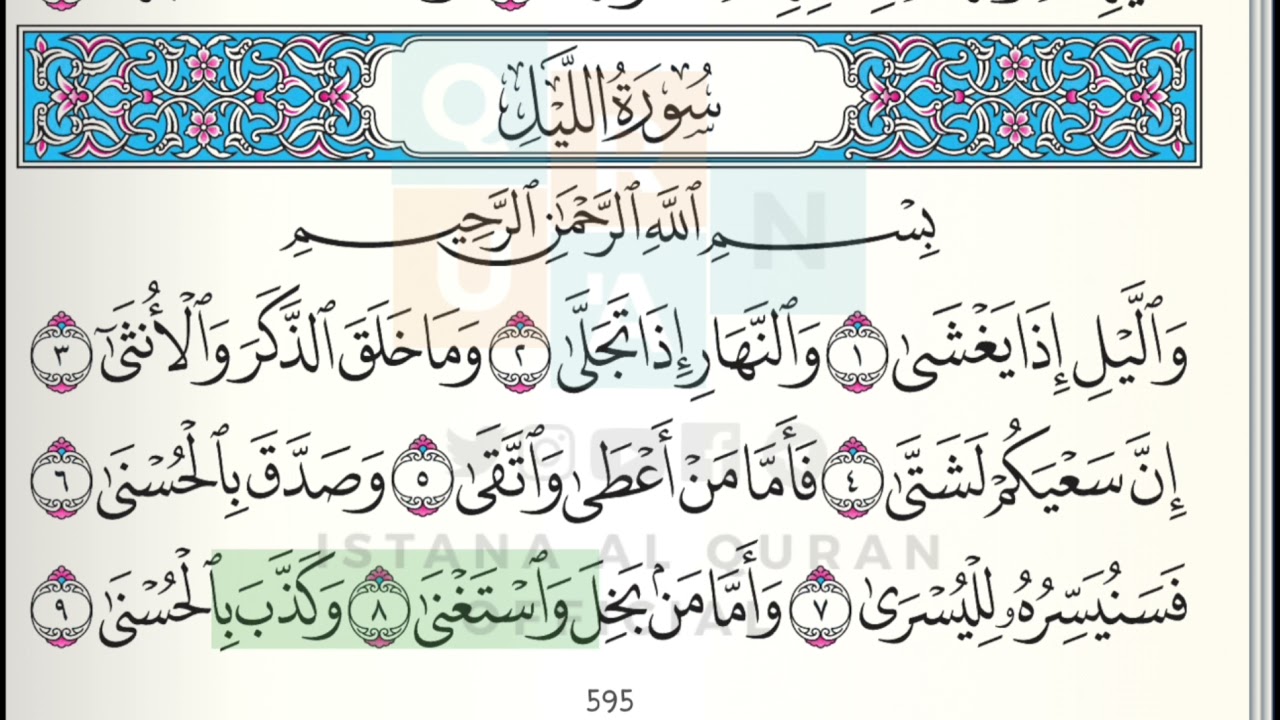 سُورَةُ اللَّيْلِ
بِسْمِ ٱللَّهِ ٱلرَّحْمَٰنِ ٱلرَّحِيمِ
وَٱلَّيْلِ إِذَا يَغْشَىٰ ١ وَٱلنَّهَارِ إِذَا تَجَلَّىٰ ٢ وَمَا خَلَقَ ٱلذَّكَرَ وَٱلْأُنثَىٰٓ ٣
إِنَّ سَعْيَكُمْ لَشَتَّىٰ ٤ فَأَمَّا مَنْ أَعْطَىٰ وَٱتَّقَىٰ ٥ وَصَدَّقَ بِٱلْحُسْنَىٰ ٦
ISTANA AL QURAN
فَسَنُيَسِّرُهُۥ لِلْيُسْرَىٰ ٧ وَأَمَّا مَنۢ بَخِلَ وَٱسْتَغْنَىٰ ٨ وَكَذَّبَ بِٱلْحُسْنَىٰ ٩
OFFICIAL
595